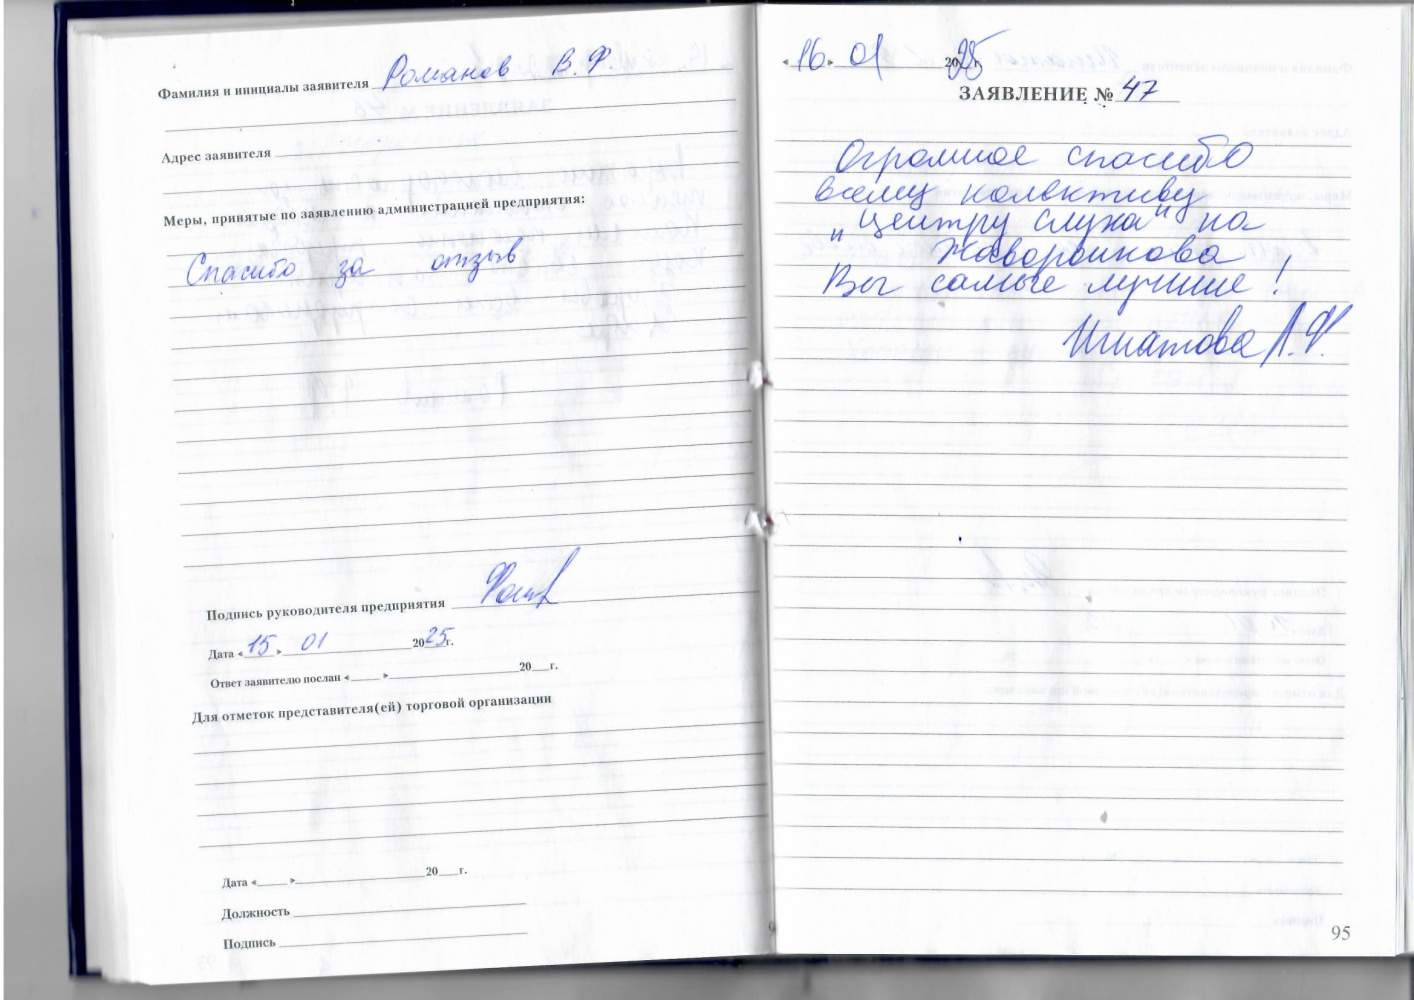 Фамилия и инициалы заявителя Романов В.Ф.
Адрес заявителя
Меры, принятые по заявлению администрацией предприятия:
Спасибо за отзыв
Подпись руководителя предприятия
Дата «15» 01 2025г.
Ответ заявителю послан « » 20 г.
Для отметок представителя(ей) торговой организации
Дата « » 20 г.
Должность
Подпись
«16» 01 2025 г.
ЗАЯВЛЕНИЕ № 47
Огромное спасибо
всему колективу
"Центру слуха" на
Жаворонкова
Вы самые лучшие!
Игнатова Л.Ф.
95